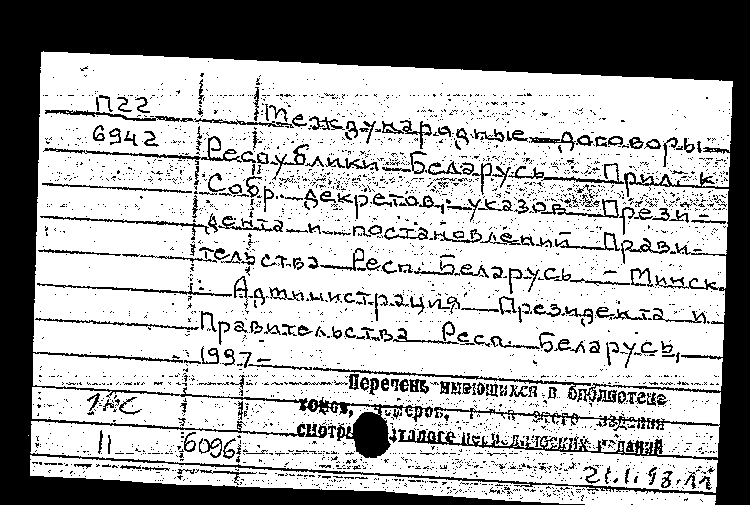 П22
6942
Международные договоры
Республики Беларусь. Прил. к
Собр. декретов, указов Прези-
дента и постановлений Прави-
тельства Респ. Беларусь. - Минск
: Администрация Президента и
Правительства Респ. Беларусь,
1997-
Перечень имеющихся в библиотеке
томов, номеров, этого издания
смотри каталоге периодических изданий
II 6096
21.1.98.